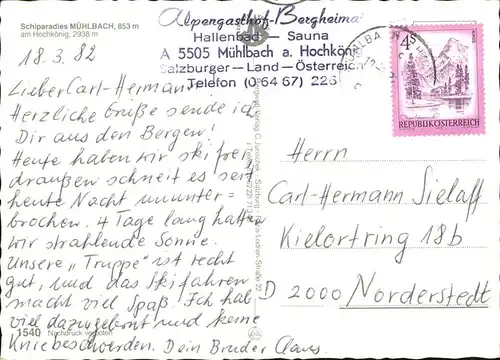 Schiparadies MÜHLBACH, 853 m
am Hochkönig, 2938 m
18.3.82
Alpengasthof-Bergheimat
Hallenbad — Sauna
A 5505 Mühlbach a. Hochkönig
Salzburger—Land—Österreich
Telefon (0 64 67) 226
4 S
REPUBLIK ÖSTERREICH
Lieber Carl-Hermann!
Herzliche Grüße sende ich
Dir aus den Bergen!
Heute haben wir skifrei
draußen schneit es seit
heute Nacht ununter-
brochen. 4 Tage lang hatten
wir strahlende Sonne.
Unsere „Truppe" ist recht
gut, und das Skifahren
macht viel Spaß! Ich hab
viel dazugelernt und keine
Kniebeschwerden. Dein Bruder Claus
1540 Nachdruck verboten
Herrn
Carl-Hermann Sielaff
Kielortring 18b
D 2000 Norderstedt